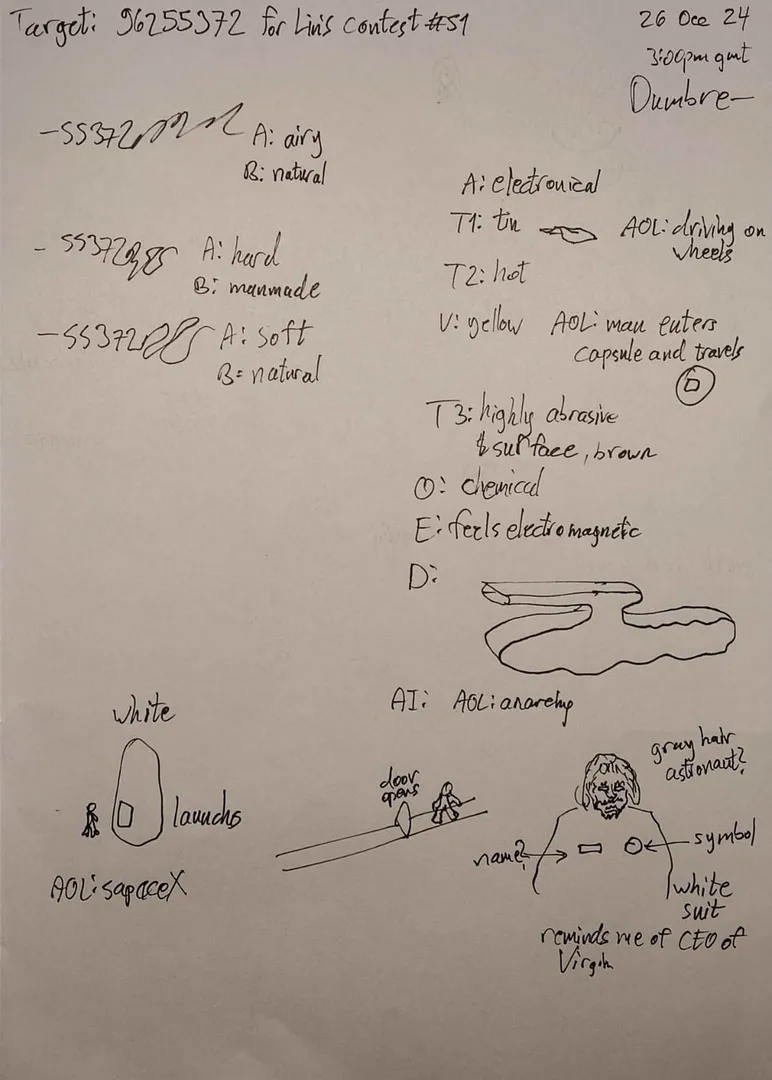 Target: 96255372 for Lin's contest #51
26 Dec 24
3:00pm gmt
Dumbre
-55372
A: airy
B: natural
- 55372
A: hard
B: manmade
-55372
A: soft
B: natural
A: electronical
T1: tin
AOL: driving on
wheels
T2: hot
V: yellow
AOL: man enters
capsule and travels
T3: highly abrasive
surface, brown
O: chemical
E: feels electromagnetic
D:
AI:
AOL: anarchy
white
launchs
AOL: sapaceX
door
opens
gray hair
astronaut?
name?
symbol
white
suit
reminds me of CEO of
Virgin